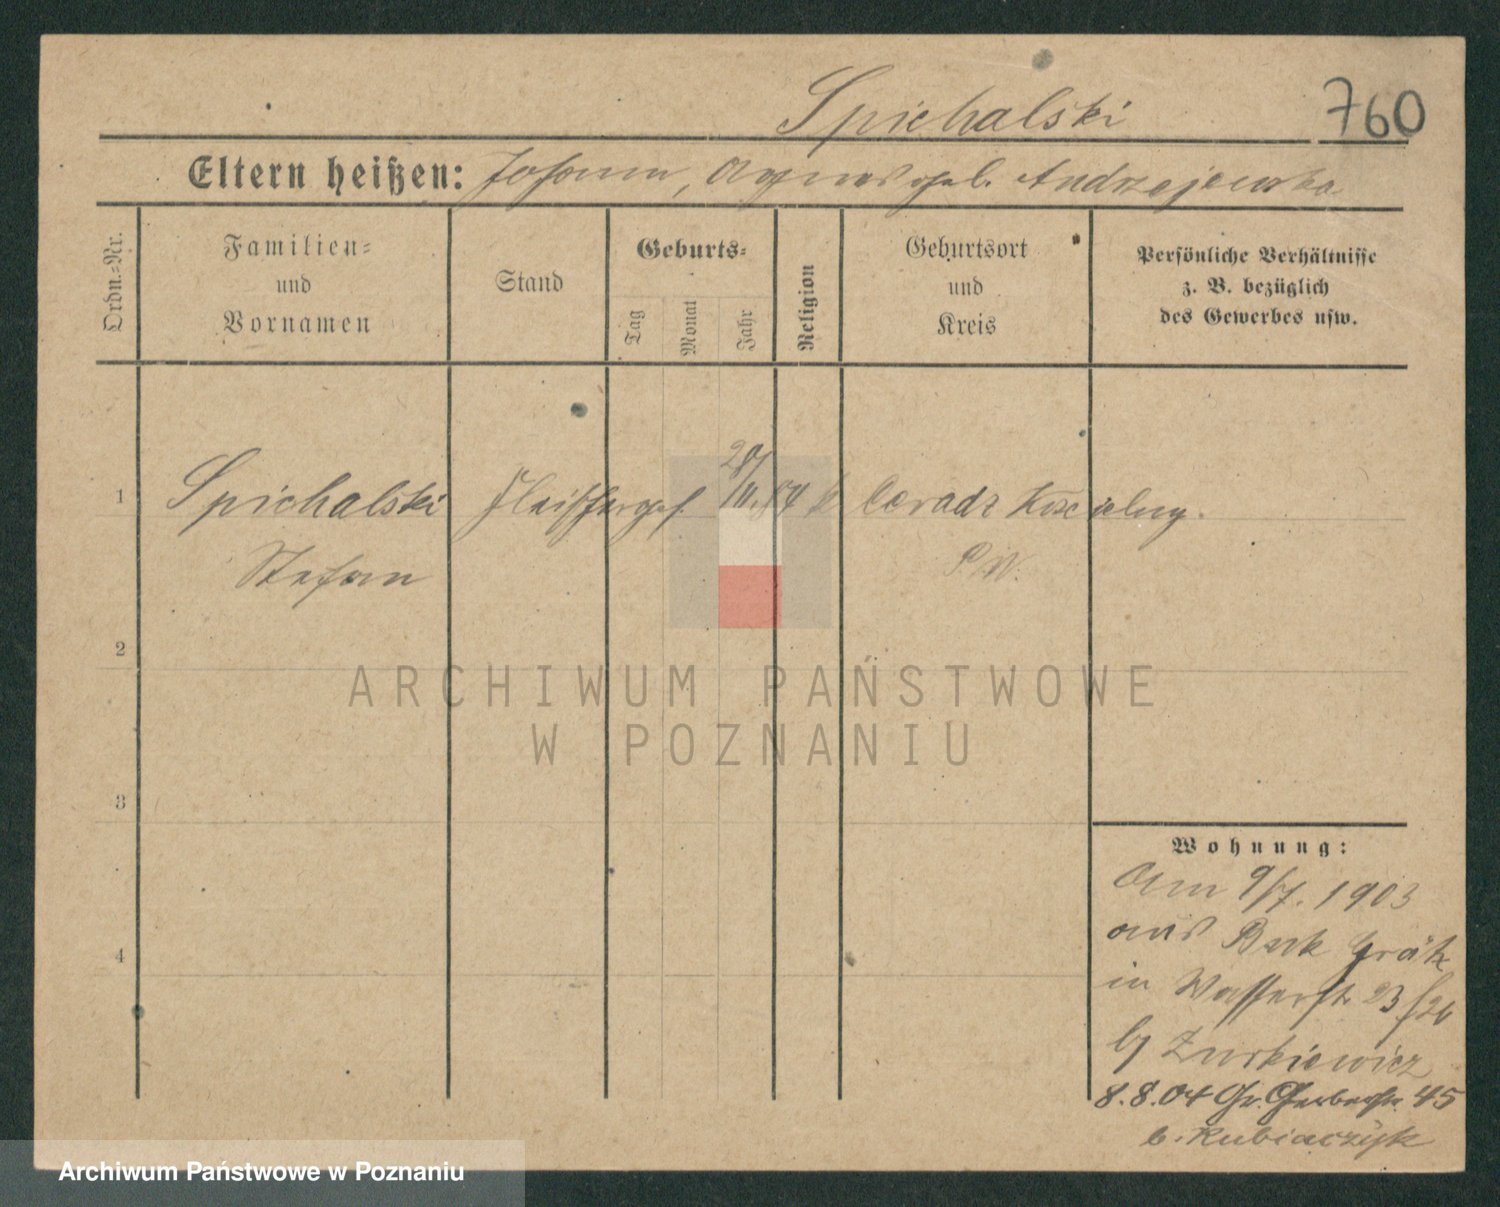 Spichalski 760
Eltern heißen: Johann, Agnes geb. Andrzejewska
Ordn.-Nr.
Familien-
und
Vornamen
Stand
Geburts-
Tag
Monat
Jahr
Religion
Geburtsort
und
Kreis
Persönliche Verhältnisse
z. B. bezüglich
des Gewerbes usw.
1 Spichalski Fleischerges. 84 k Ceradz Koscielny.
Stefan P.W.
2
ARCHIWUM PAŃSTWOWE
W POZNANIU
3
Wohnung:
Am 9/7. 1903
aus Buk Grätz
in Wasserstr 23/24
by Zurkiewicz
4
8.8.04 Gr. Gerberstr 45
b. Kubiaczyk
Archiwum Państwowe w Poznaniu